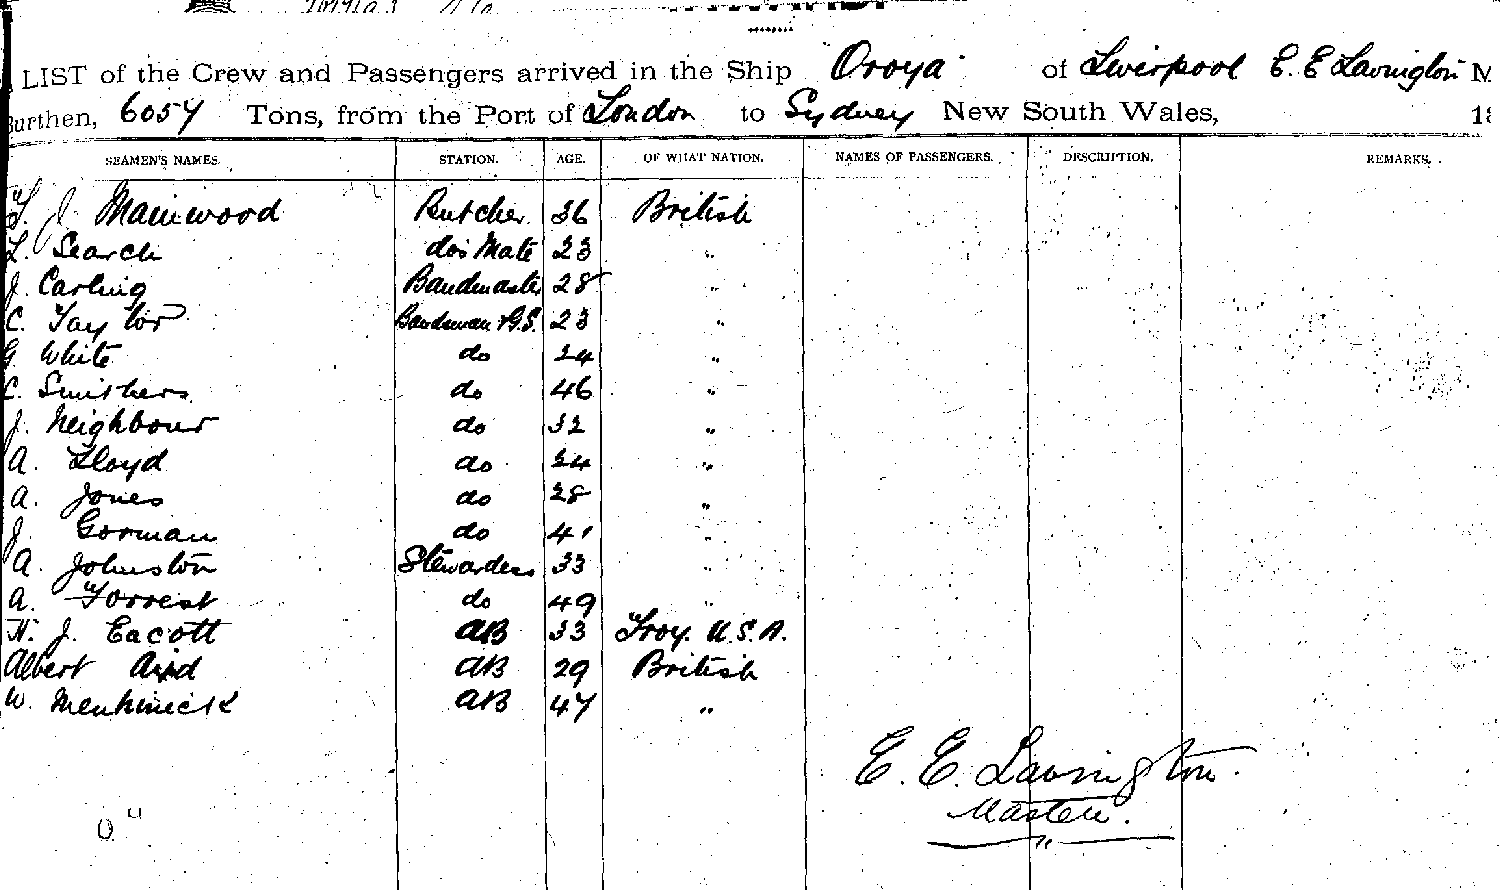 LIST of the Crew and Passengers arrived in the Ship Oroya of Liverpool E. E Lavington M
Burthen, 6057 Tons, from the Port of London to Sydney New South Wales, 18
SEAMEN'S NAMES. STATION. AGE. OF WHAT NATION. NAMES OF PASSENGERS. DESCRIPTION. REMARKS.
T. J. Mainwood Butcher 36 British
L. Search do's Mate 23 "
J. Carling Bandmaster 28 "
C. Taylor Bandsman & G.S. 23 "
G. White do 24 "
C. Smithers do 46 "
J. Neighbour do 32 "
A. Lloyd do 24 "
A. Jones do 28 "
J. Gorman do 41 "
A. Johnston Stewardess 33 "
A. Forrest do 49 "
J. Eacott AB 33 Troy. U.S.A.
Albert AB 29 British
W. Menhinick AB 47 "
E. E. Lavington.
Master.